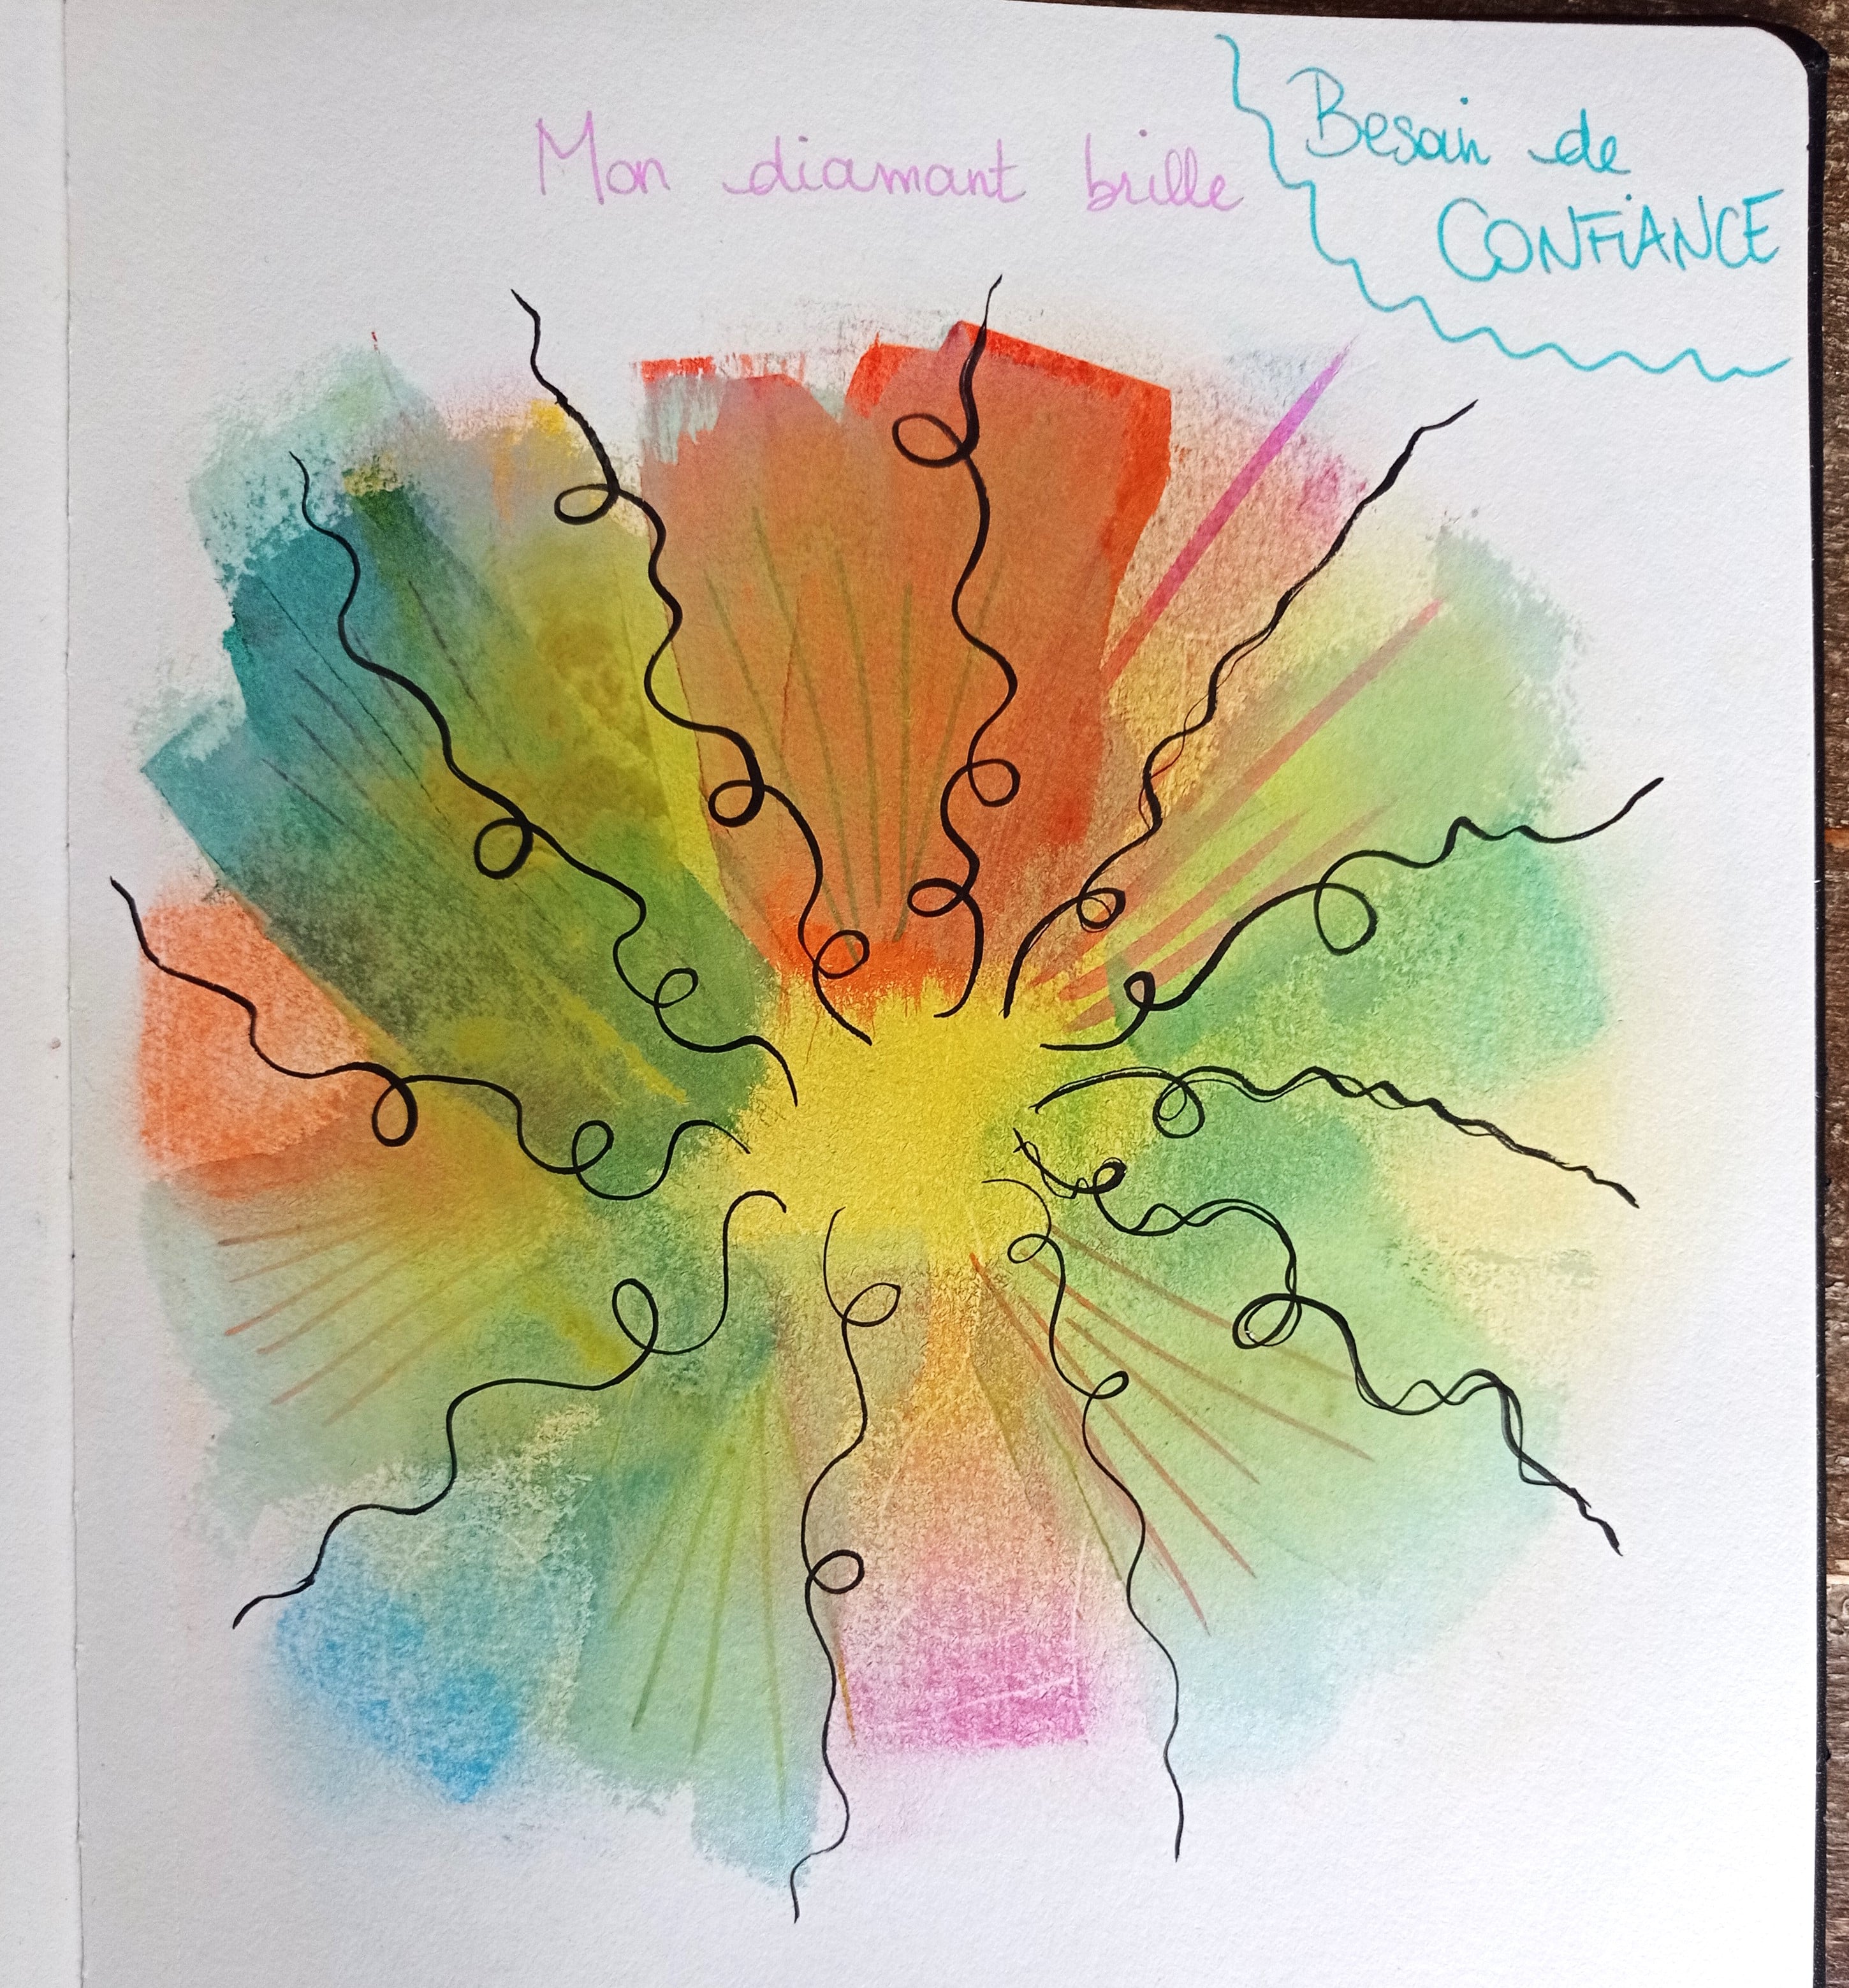 Mon diamant brille
Besoin de
CONFiANCE